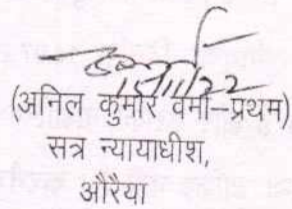 (अनिल कुमार वर्मा-प्रथम)
सत्र न्यायाधीश,
औरैया